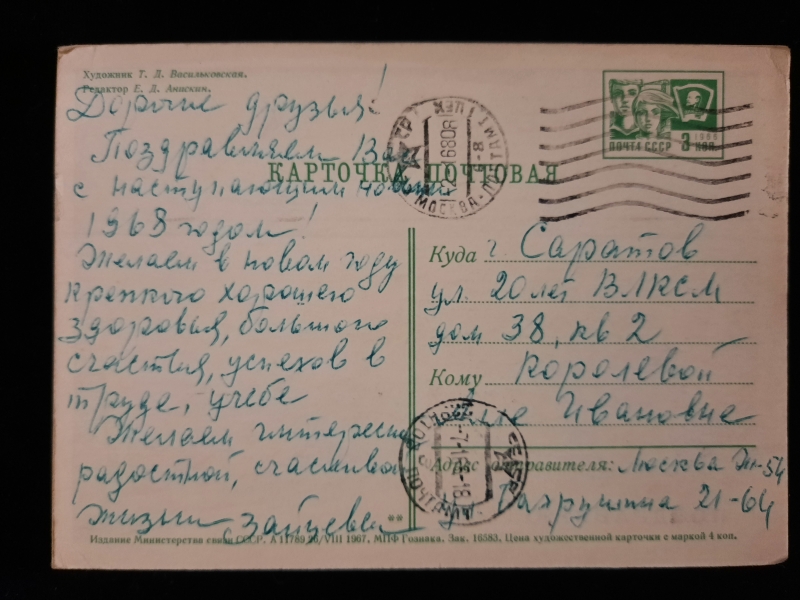 Художник Т. Д. Васильковская.
Редактор Е. Д. Анискин.
Дорогие друзья!
Поздравляем Вас
с наступающим новым
1968 годом!
Желаем в новом году
крепкого хорошего
здоровья, большого
счастья, успехов в
труде, учебе
Желаем интересной
радостной, счастливой
жизни Зайцевы
КАРТОЧКА ПОЧТОВАЯ
МОСКВА-ПОЧТАМТ
ПОЧТА СССР 3 КОП.
1966
Куда г. Саратов
ул. 20 лет ВЛКСМ
дом 38, кв 2
Кому Королевой
Ивановне
Адрес отправителя: Москва Ж-54
Бахрушина 21-64
**
Издание Министерства связи СССР. А 11789 26/VIII 1967. МПФ Гознака. Зак. 16583. Цена художественной карточки с маркой 4 коп.